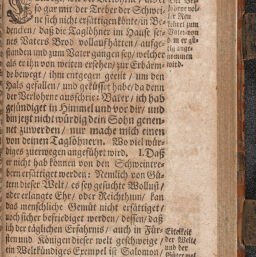 so gar mit der Treber der Schwei-
ne sich nicht ersättigen könte/ in Be-
dencken/ daß die Taglöhner im Hause sei-
nes Vaters Brod vollauf hätten/ aufge-
standen und zum Vater gangen sey/ welcher
als er ihn von weiten ersehen/ zur Erbärm-
de bewegt/ ihm entgegen geeilt/ um den
Hals gefallen/ und geküsset habe/ da dem
der Verlohrne ausschrie: Vater/ ich hab
gesündiget in Himmel und vor dir/ und
bin jetzt nicht würdig dein Sohn genen-
net zuwerden/ nur mache mich einen
von deinen Taglöhnern. Wo viel wür-
diges zuerwegen angeführt wird. 1. Daß
er nicht hab können von den Schweintre-
bern ersättiget werden: Nemlich von Gü-
tern dieser Welt/ es sey gesuchte Wollust/
oder erlangte Ehr/ oder Reichthum/ kan
das menschliche Gemüt nicht ersättiget/
noch sicher befriediget werden/ dessen/ daß
ich der täglichen Erfahrniß/ auch in Für-
sten und Königen dieser welt geschweige/
ein Weltkündiges Exempel ist Salomon/
Vater von
wird.
Eitelkeit
der Welt
und der